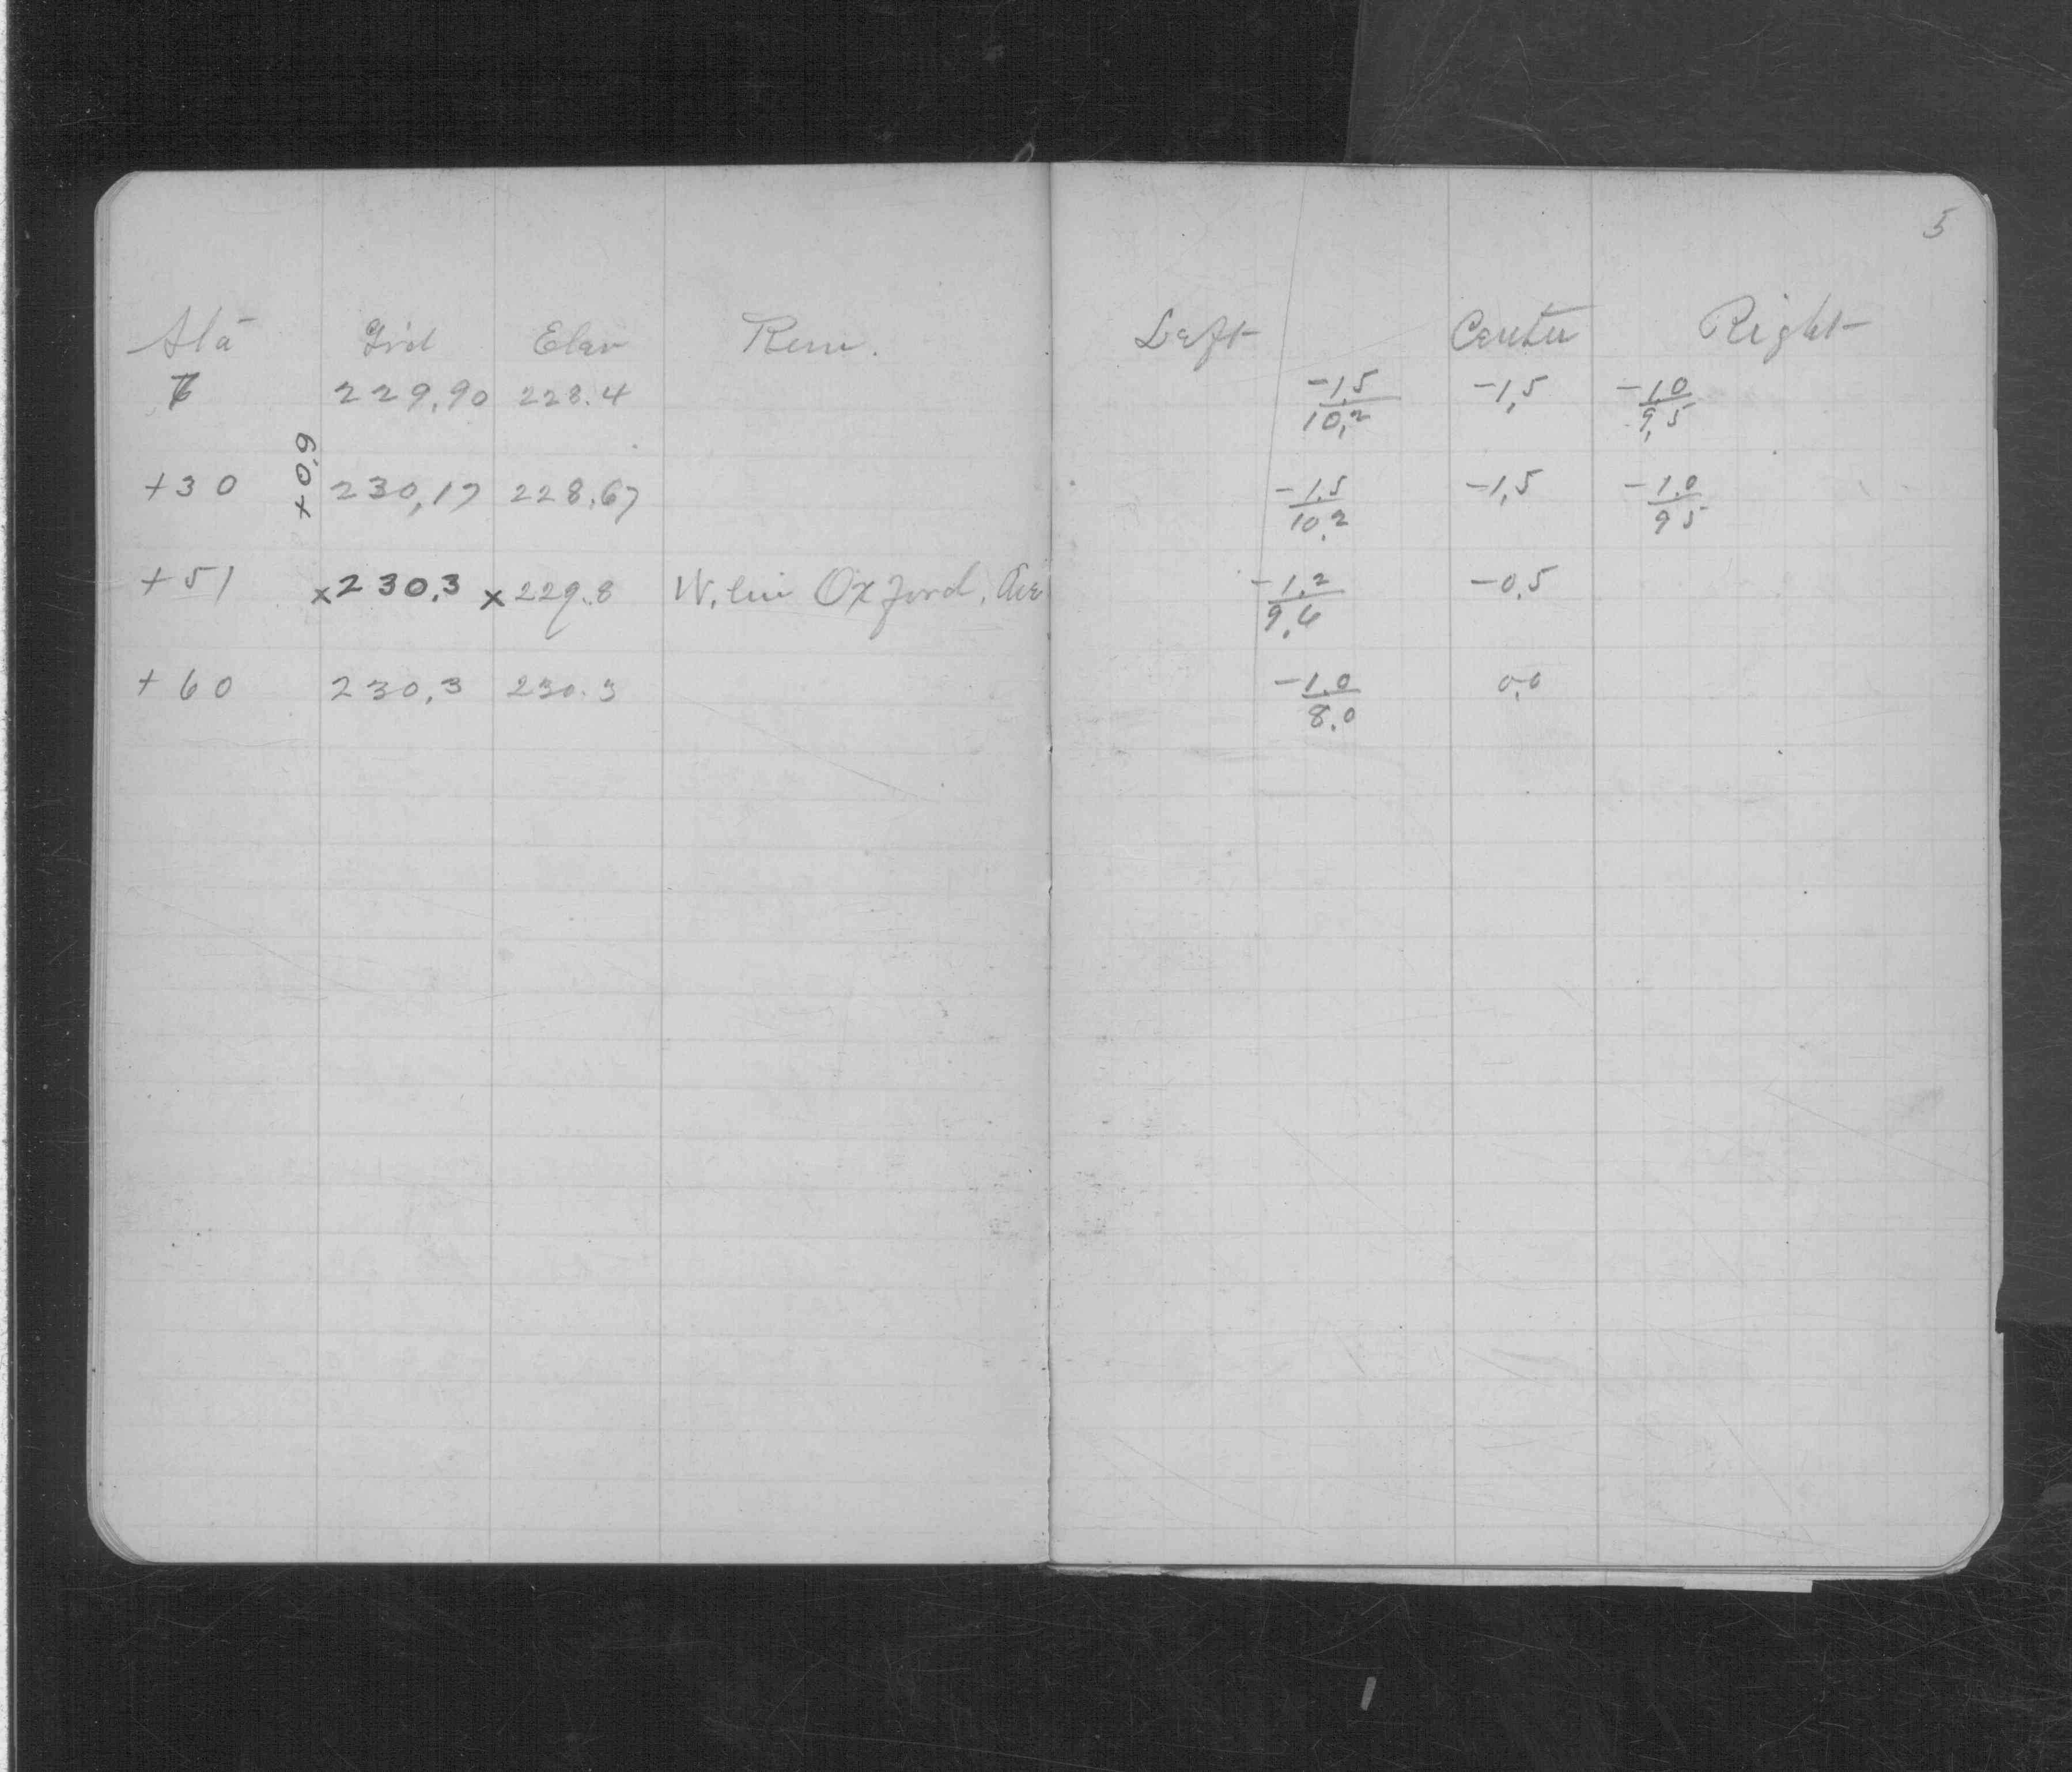 5
Sta Grd Elev Rem. Left Center Right
229.90 228.4 -1.5/10.2 -1.5 -1.0/9.5
+0.9
+30 230.17 228.67 -1.5/10.2 -1.5 -1.0/9.5
+51 x230.3 x229.8 W. lin Oxford. Ave -1.2/9.6 -0.5
+60 230.3 230.3 -1.0/8.0 0.0